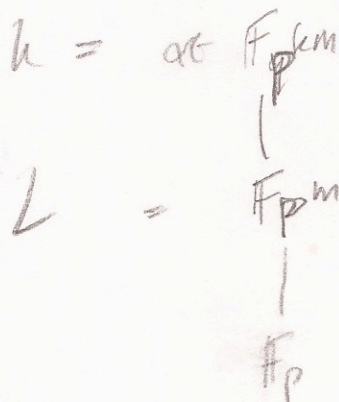 k = α∈ 𝔽_{p^{km}}
L = 𝔽_{p^m}
𝔽_p